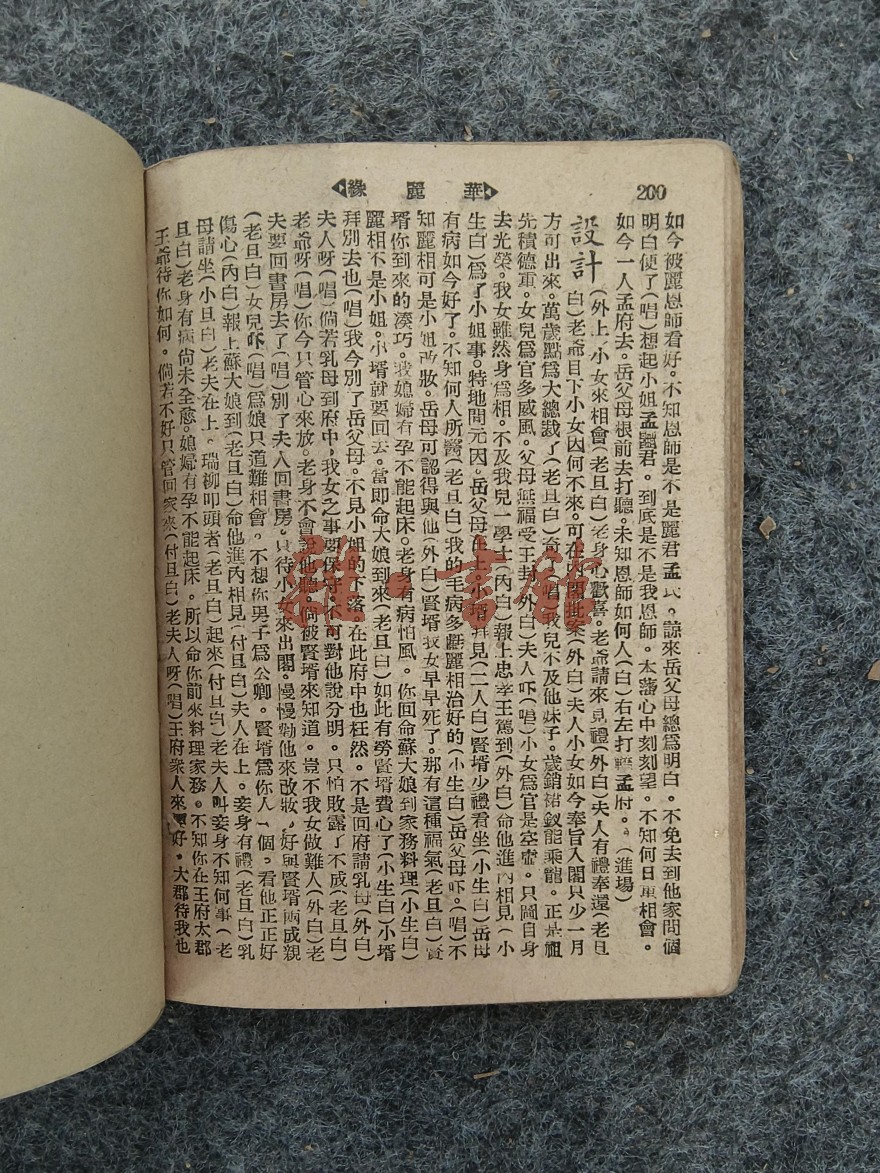 200
華麗緣
如今被麗恩師看好。不知恩師是不是麗君孟氏。諒來岳父母總爲明白。不免去到他家問個
明白便了(唱)想起小姐孟麗君。到底是不是我恩師。本藩心中刻刻望。不知何日重相會。
如今一人孟府去。岳父母根前去打聽。未知恩師如何人(白)右左打轎孟府。(進場)
設計(外上)小女來相會(老旦白)老身心歡喜。老爺請來見禮(外白)夫人有禮奉還(老旦
白)老爺目下小女因何不來。可在入閣批案(外白)夫人小女如今奉旨入閣只少一月
方可出來。萬歲點爲大總裁了(老旦白)奇(唱)我兒不及他妹子。歲銷裙釵能乘龍。正是祖
先積德重。女兒爲官多威風。父母無福受王封(外白)夫人吓(唱)小女爲官是空虛。只圖自身
去光榮。我女雖然身爲相。不及我兒一學士(內白)報上忠孝王駕到(外白)命他進內相見(小
生白)爲了小姐事。特地問元因。岳父母在上小壻拜見(二人白)賢壻少禮看坐(小生白)岳母
有病如今好了。不知何人所醫(老旦白)我的毛病多虧麗相治好的(小生白)岳父母吓。(唱)不
知麗相可是小姐改妝。岳母可認得與他(外白)賢壻我女早早死了。那有這種福氣(老旦白)賢
壻你到來的湊巧。我媳婦有孕不能起床。老身有病怕風。你回命蘇大娘到家務料理(小生白)
麗相不是小姐。小壻就要回去。當即命大娘到來(老旦白)如此有勞賢壻費心了(小生白)小壻
拜別去也(唱)我今別了岳父母。不見小姐的下落。在此府中也枉然。不是回府請乳母(外白)
夫人呀(唱)倘若乳母到府中。我女之事要保守。不可對他說分明。只怕敗露了不成(老旦白)
老爺呀(唱)你今只管心來放。老身不會說他聽。倘被賢壻來知道。豈不我女做難人(外白)老
夫要回書房去了(唱)別了夫人回書房。只待小女來出閣。慢慢勸他來改妝。好與賢壻兩成親
(老旦白)女兒吓(唱)爲娘只道難相會。不想你男子爲公卿。賢壻爲你人一個。看他正正好
傷心(內白)報上蘇大娘到(老旦白)命他進內相見(付旦白)夫人在上。妾身有禮(老旦白)乳
母請坐(小旦白)老夫在上。瑞柳叩頭者(老旦白)起來(付旦白)老夫人叫妾身不知何事(老
旦白)老身有病尙未全愈。媳婦有孕不能起床。所以命你前來料理家務。不知你在王府太郡
王爺待你如何。倘若不好只管回家來(付旦白)老夫人呀(唱)王府衆人來好。大郡待我也
雜·書館